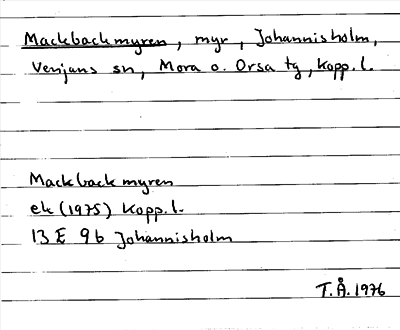 Mackbackmyren, myr, Johannisholm,
Venjans sn, Mora o. Orsa tg, Kopp. l.
Mackbackmyren
ek (1975) Kopp. l.
13 E 9b Johannisholm
T.Å. 1976